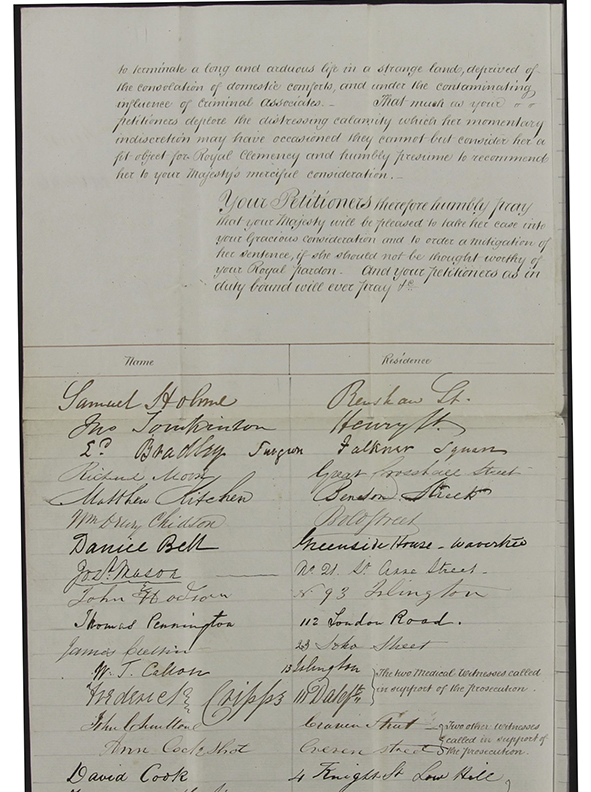 to terminate a long and arduous life in a strange land, deprived of
the consolation of domestic comforts, and under the contaminating
influence of criminal associates. _ That much as your
petitioners deplore the distressing calamity which her momentary
indiscretion may have occasioned they cannot but consider her a
fit object for Royal Clemency and humbly presume to recommend
her to your Majesty's merciful consideration. _
Your Petitioners therefore humbly pray
that your Majesty will be pleased to take her case into
your Gracious consideration and to order a mitigation of
her sentence, if she should not be thought worthy of
your Royal pardon. _ And your petitioners as in
duty bound will ever pray &c
Name Residence
Samuel Holme Renshaw St.
Jno Tomkinson Henry St.
Ed. Bradley Surgeon Falkner Square
Richard Great Crosshall Street
Matthew Kitchen Benson Street
Wm Drury Chidson Bold Street
Daniel Bell Greenside House _ Wavertree
Josh. Mason No. 21. St. Anne Street _
John Hodson N 93 Islington
Thomas Pennington 112 London Road.
James 23 Soho Street
W. J. 13 Islington
The two Medical Witnesses called
Frederick Cripps 111 Dale St.
in support of the prosecution.
John Craven Street
Two other witnesses
Ann Cockshot Craven Street
called in support of
the prosecution.
David Cook 4 Knight St Low Hill